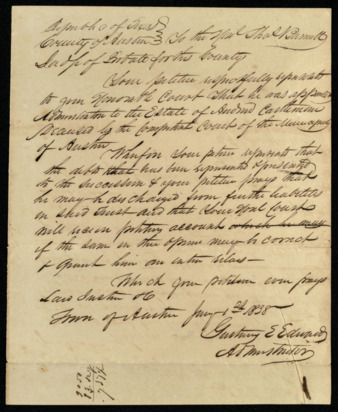 Republic of Texas
County of Austin } To the Honl Thos Barnett
Judge of Probate for the County
Your petitioner respectfully represents
to your Honorable Court that he was appointed
Administrator to the Estate of Andrew Castleman
Deceased by the Competent Court of the Municipality
of Austin
Wherefore your petitioner represents that
the debts that has been represented & presented
to the Succession & your petitioner prays that
he may be discharged from further liabilities
in said trust and that your Honl Court
will receive account which he may
if the same in their opinion may be correct
& grant him an entire release
Which your petitioner ever prays
Town of Austin Jany 1838
Gustavus E Edwards
Administrator